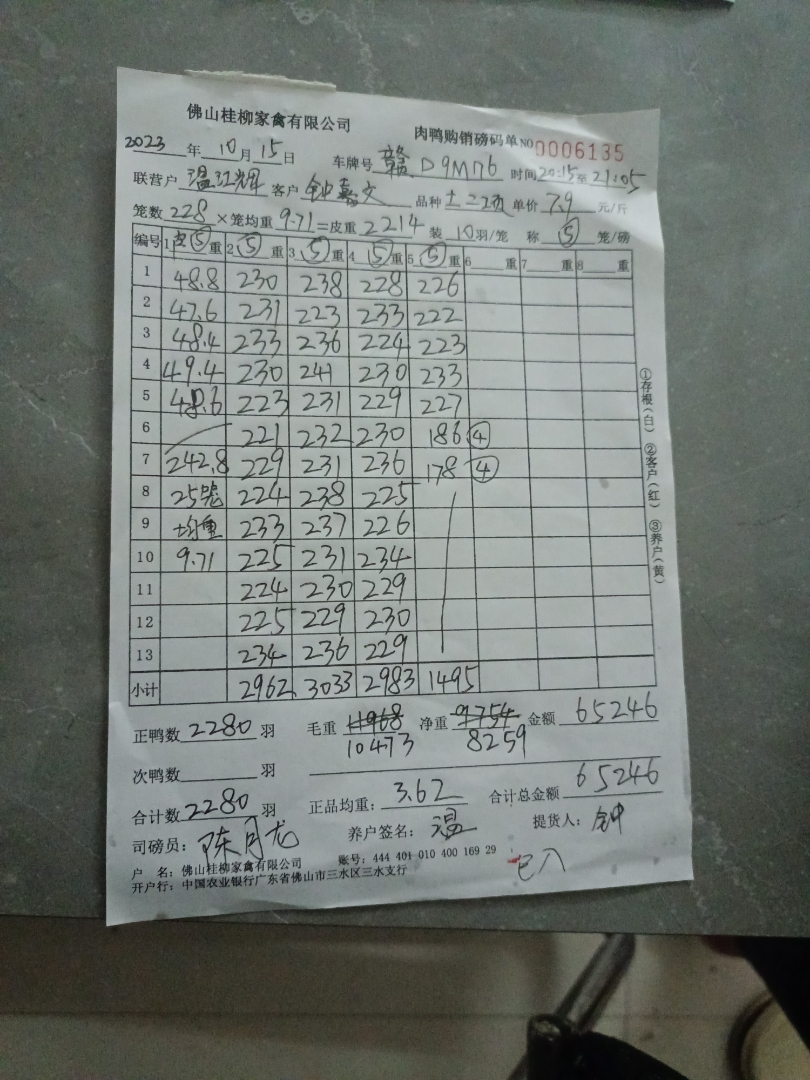 佛山桂柳家禽有限公司
肉鸭购销磅码单NO 0006135
2023年10月15日 车牌号 赣D9M776 时间20:15至21:05
联营户 温江辉 客户 钟嘉文 品种 土二顶 单价 7.9 元/斤
笼数 228 ×笼均重 9.71 =皮重 2214 装 10羽/笼 称 ⑤ 笼/磅
编号 1皮⑤重 2⑤重 3⑤重 4⑤重 5⑤重 6重 7重 8重
1 48.8 230 238 228 226
2 47.6 231 223 233 222
3 48.4 233 236 224 223
4 49.4 230 241 230 233
5 48.6 223 231 229 227
6 221 232 230 186 ④
7 242.8 229 231 236 178 ④
8 25笼 224 238 225
9 均重 233 237 226
10 9.71 225 231 234
11 224 230 229
12 225 229 230
13 234 236 229
小计 2962 3033 2983 1495
①存根(白) ②客户(红) ③养户(黄)
正鸭数 2280 羽 毛重 11968 净重 9754 金额 65246
10473 8259
次鸭数 羽
合计数 2280 羽 正品均重: 3.62 合计总金额 65246
司磅员: 陈月龙 养户签名: 温 提货人: 钟
户 名: 佛山桂柳家禽有限公司 账号: 444 401 010 400 169 29
开户行: 中国农业银行广东省佛山市三水区三水支行
已入